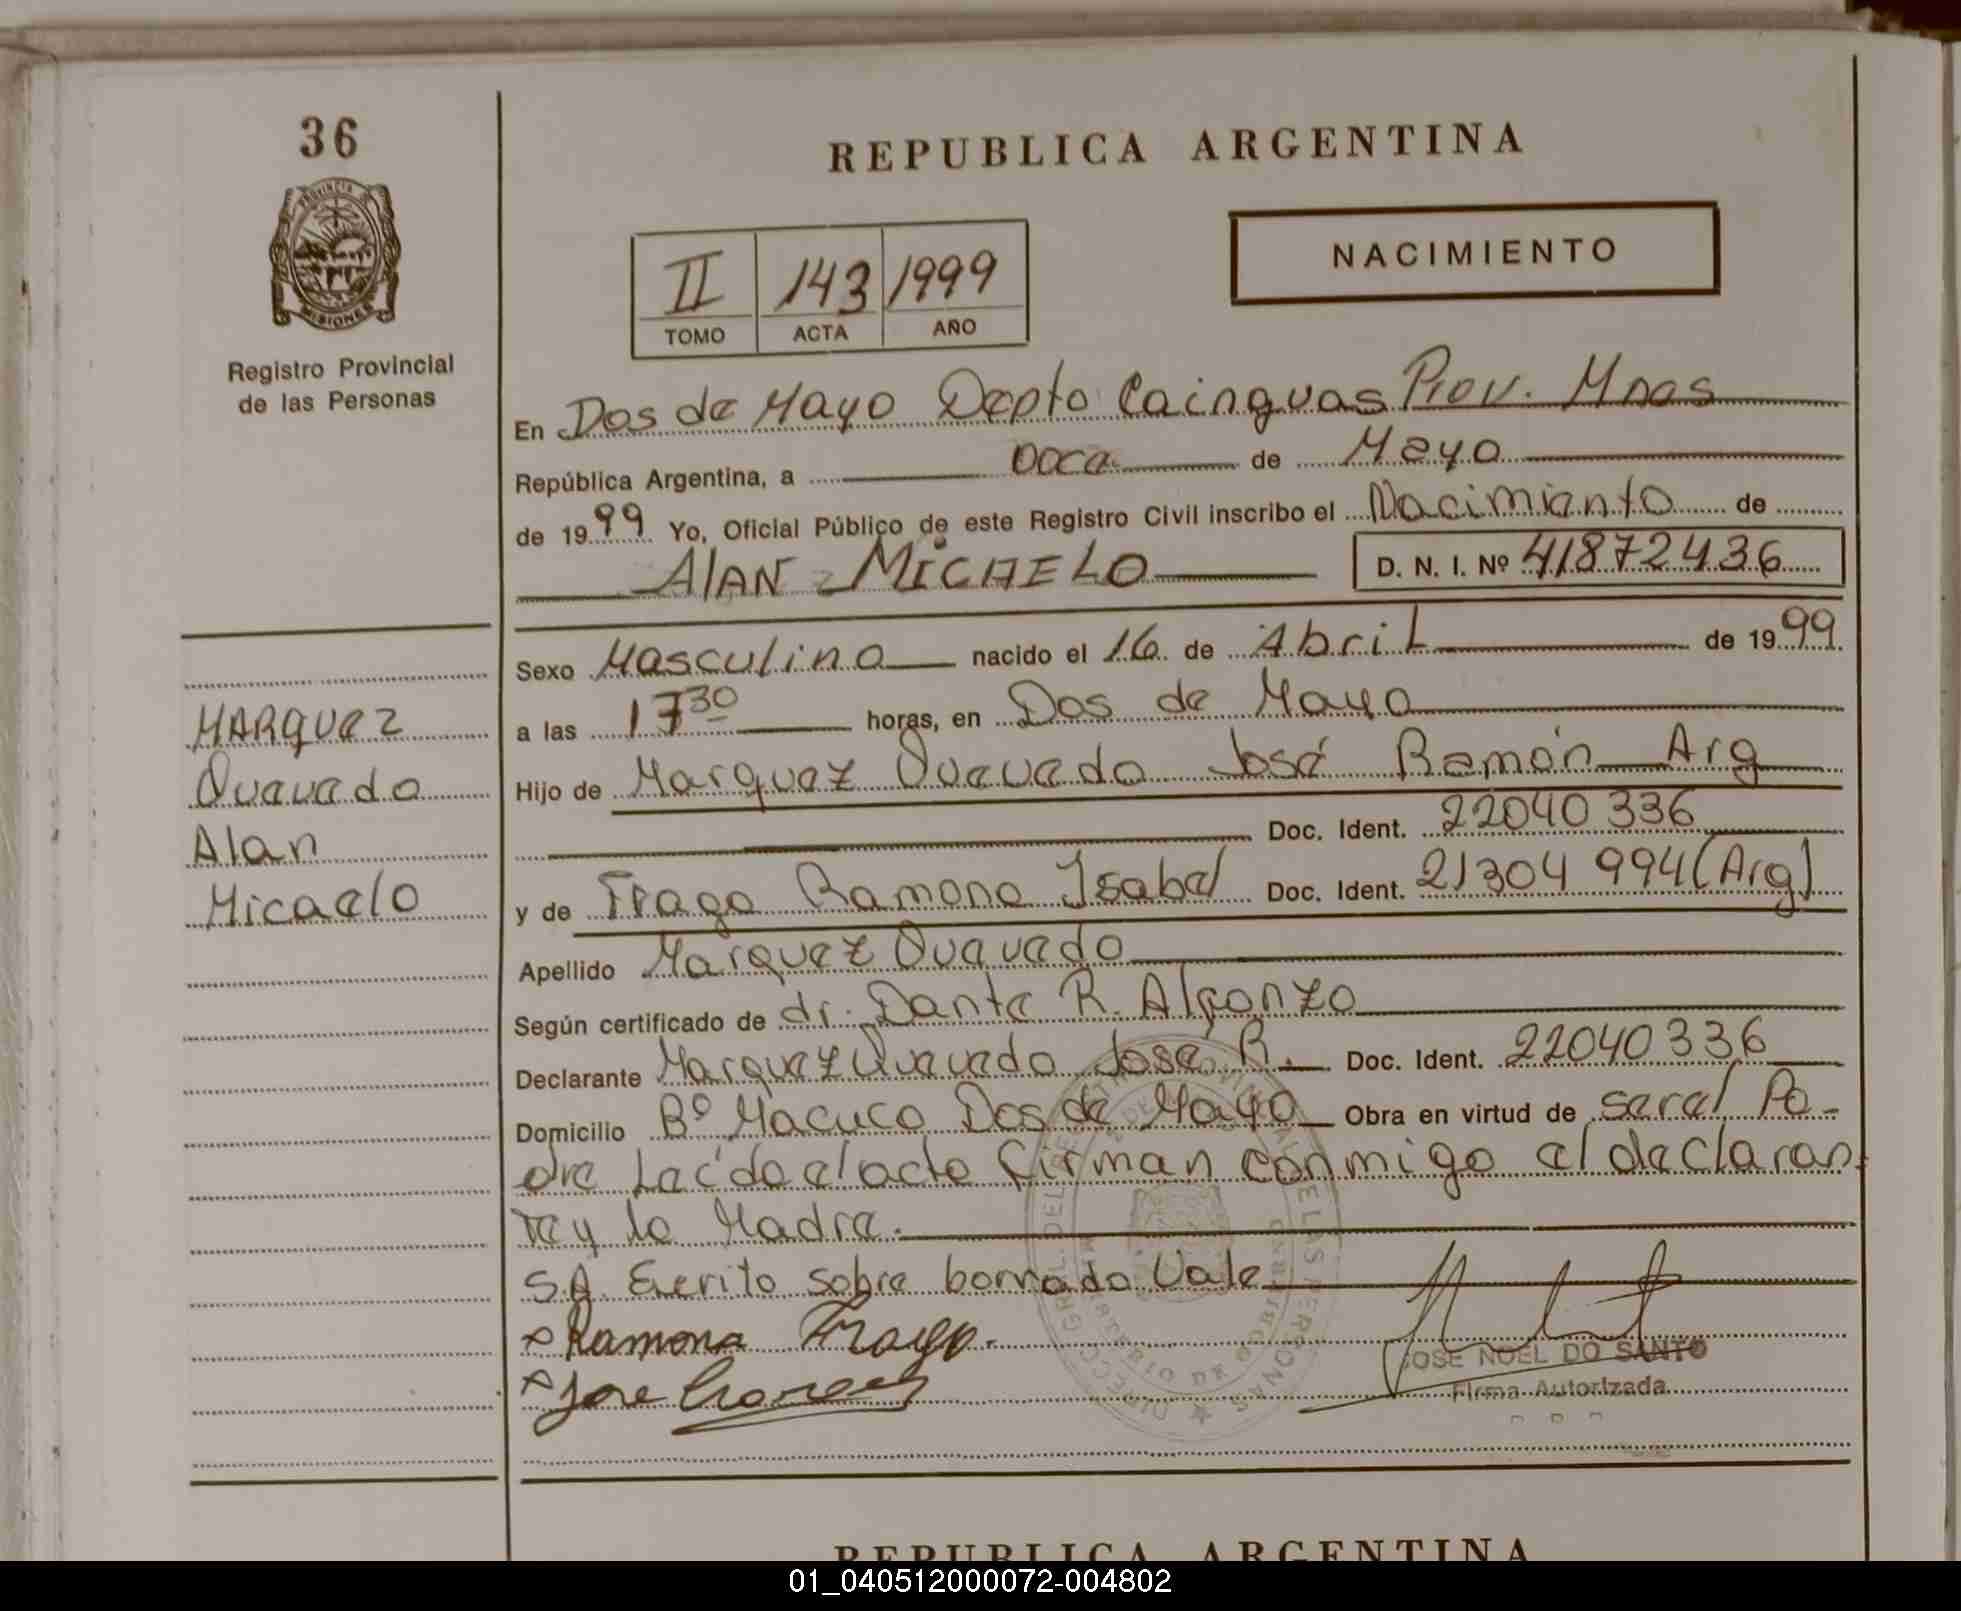 36
PROVINCIA
MISIONES
Registro Provincial
de las Personas
MARQUEZ
Quevedo
Alan
Micaelo
REPUBLICA ARGENTINA
NACIMIENTO
II 143 1999
TOMO ACTA AÑO
En Dos de Mayo Depto Cainguas Prov. Mnes
República Argentina, a Doce de Mayo
de 1999 Yo, Oficial Público de este Registro Civil inscribo el Nacimiento de
ALAN MICAELO D. N. I. Nº 41872436
Sexo Masculino nacido el 16 de Abril de 1999
a las 17 30 horas, en Dos de Mayo
Hijo de Marquez Quevedo José Ramón Arg
Doc. Ident. 22040336
y de Fraga Ramona Isabel Doc. Ident. 21304994 (Arg)
Apellido Marquez Quevedo
Según certificado de dr. Dante R. Alfonzo
Declarante Marquez Quevedo José R. Doc. Ident. 22040336
Domicilio Bº Macuco Dos de Mayo Obra en virtud de ser el Pa-
dre Leída el acta firman conmigo el declaran
te y la Madre.
S.A. Escrito sobre borrado Vale
x Ramona Fraga.
x Jose
JOSE NOEL DO SANTO
Firma Autorizada
REPUBLICA ARGENTINA
01_040512000072-004802